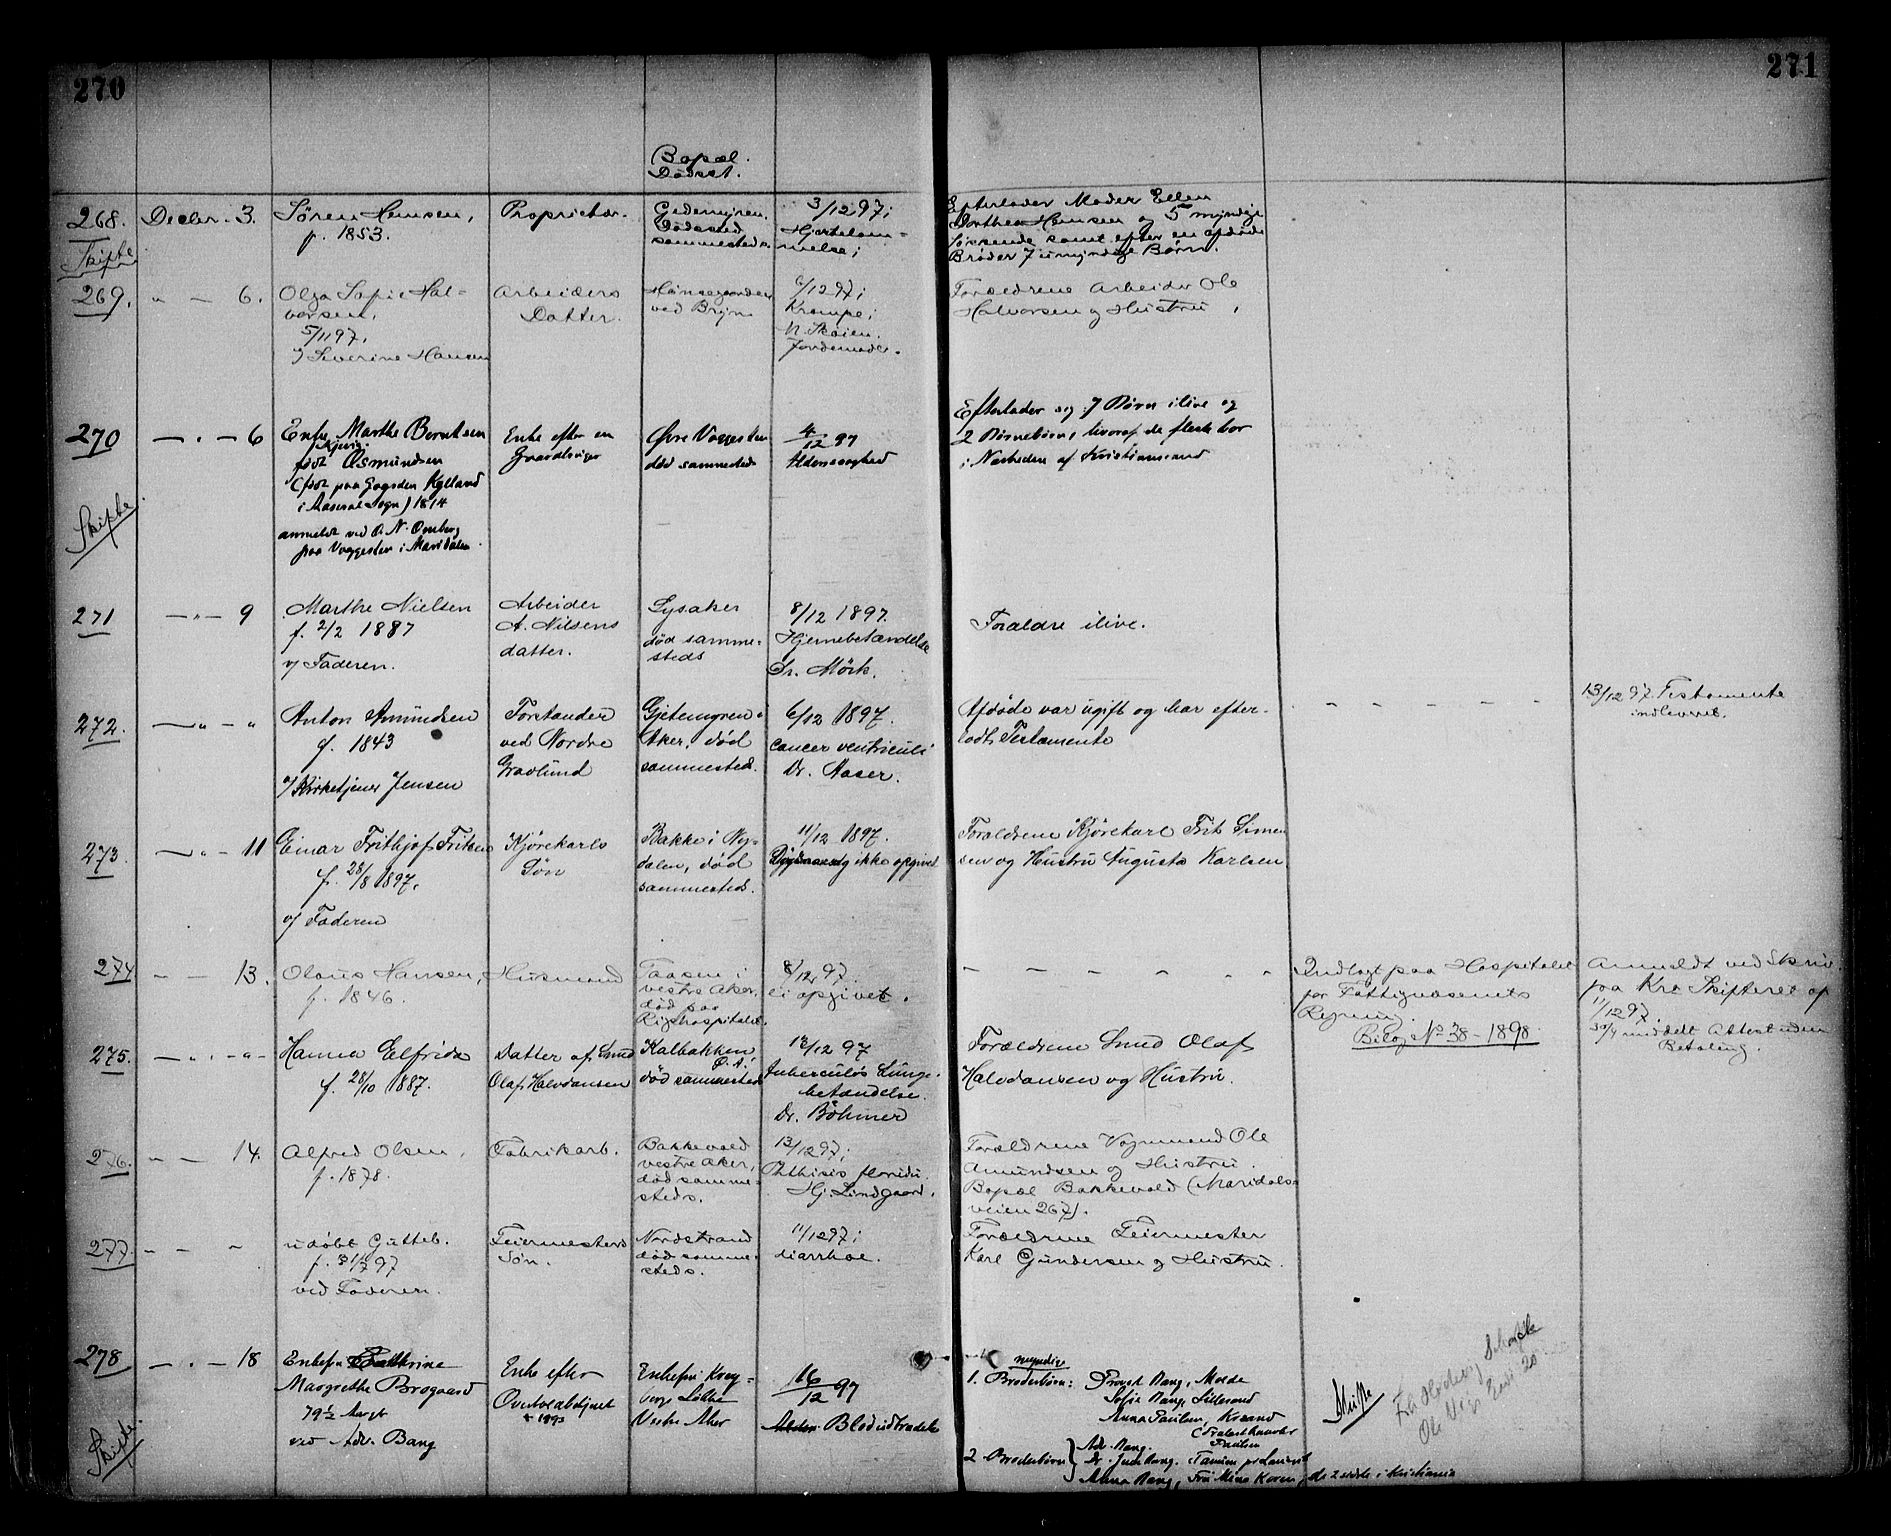 270
271
Bopæl.
Dødsst.
268. Decbr. 3. Søren Hemsen,
f. 1853.
Proprietær.
Gjedemyren.
Dødssted
sammesteds.
3/12 97;
Hjertelam-
melse;
Efterlader Moder Ellen
Dorthea Hemsen og 5 myndige
Søskende samt efter en afdøde
Broder 7 umyndige Børn.
Skifte
269. " — 6. Olga Sofie Hal-
vorsen,
5/11 97.
v/ Severine Hansen
Arbeiders
Datter.
ved Bryn
6/12 97;
Krampe;
N. Skøien.
Jordemoder.
Forældrene Arbeider Ole
Halvorsen og Hustru,
270 — " — 6 Enke Marthe Berntsen
født Osmundsen
(født paa Gaarden Kylland
i Aaseral Sogn) 1814
anmeldt ved A. N. Omberg
paa Vaggesten i Maridalen.
Enke efter en
Gaardbruger
Øvre Vaggesten
død sammesteds
4/12 97
Alderssvaghed
Efterlader sig 7 Børn ilive og
2 Børnebørn, hvoraf de fleste bor
i Nærheden af Kristianssand
Skifte
271 — " — 9 Marthe Nielsen
f. 2/2 1887
v/ Faderen.
Arbeider
A. Nilsens
datter.
Lysaker
død samme-
steds
8/12 1897.
Hjernebetændelse
Dr. Mörk.
Forældre ilive.
272. — " — " Anton Amundsen
f. 1843
v/ Kirketjener Jensen
Forstander
ved Nordre
Gravlund
Gjetemyren i
Aker, død
sammesteds.
6/12 1897.
cancer ventriculi
Dr. Aaser.
Afdøde var ugift og har efter-
ladt Testamente
13/12 97 Testamente
indleveret.
273. — " — 11 Einar Frithjof Fritsen
f. 28/8 1897.
v/ Faderen
Kjørekarls
Søn
Bakke i Ny-
dalen, død
sammesteds.
11/12 1897.
ikke opgivet
Forældrene Kjørekarl Frits Simen
sen og Hustru Augusta Karlsen
274 — — 13. Olaus Hansen,
f. 1846.
Husmand
Taasen i
vestre Aker,
død paa
Rigshospitalet.
8/12 97.
ei opgivet.
Indlagt paa Hospitalet
for Fattigvæsenets
Regning.
Bilag No 38 - 1898
Anmeldt ved Skriv.
fra Kra Skifteret af
11/12 97.
30/4 meddelt Attest uden
Betaling.
275. — " — " — Hanna Elfrida
f. 28/10 1887.
Datter af Smed
Olaf Halvdansen
Kalbakken,
Ø. A.
død sammesteds
12/12 97
tuberculøs Lunge-
betændelse.
Dr. Böhmer
Forældrene Smed Olaf
Halvdansen og Hustru.
276. — — 14. Alfred Olsen,
f. 1878.
Fabrikarb.
Bakkevold
vestre Aker,
død samme-
steds.
13/12 97;
Phthisis florida.
Hj. Lindgaard.
Forældrene Vognmand Ole
Amundsen og Hustru.
Bopæl Bakkevold (Maridals-
veien 267).
277. — — — udøbt Gutteb.
f. 3/12 97
ved Faderen.
Feiermesters
Søn.
Nordstrand
død samme-
steds.
11/12 97;
diarrhoe.
Forældrene Feiermester
Karl Gundersen og Hustru.
278 — " — 18 Enkefru Cathrine
Margrethe Brogaard
79½ Aar gl
ved Adv. Bang
Enke efter
† 1893
Enkefru
Løkke
Vestre Aker
16/12 97
Blodudtrædelse
myndige
1. Broderbørn: Provst Bang, Molde
Sofie Bang, Lillesand
Anna Paulsen, Krsand
Paulsen
2 Broderbørn } Adv. Bang.
Dr. Bang.
Anna Bang, Fru Mina Koren, de 2 sidste i Kristiania
Skifte
Skifte